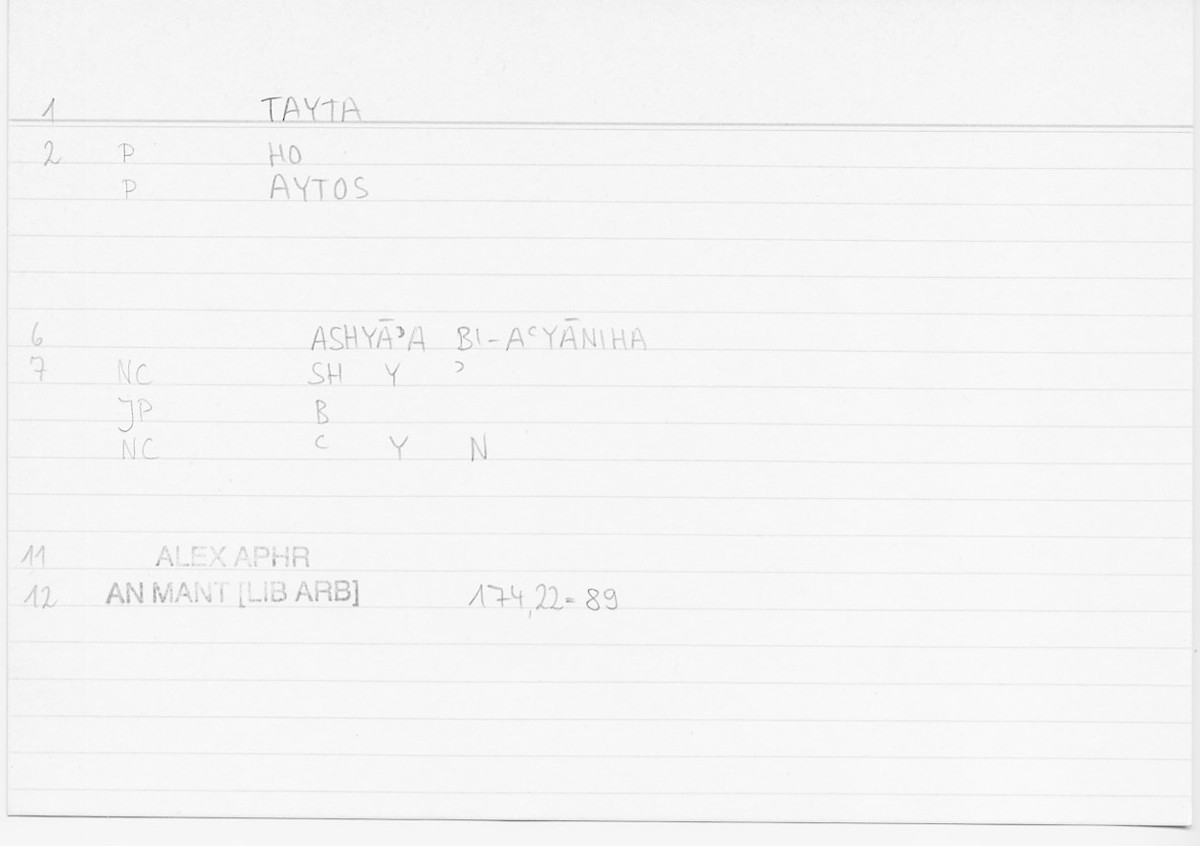 1 TAYTA
2 P HO
P AYTOS
6 ASHYĀʾA BI-AʿYĀNIHA
7 NC SH Y ʾ
JP B
NC ʿ Y N
11 ALEX APHR
12 AN MANT [LIB ARB] 174,22=89